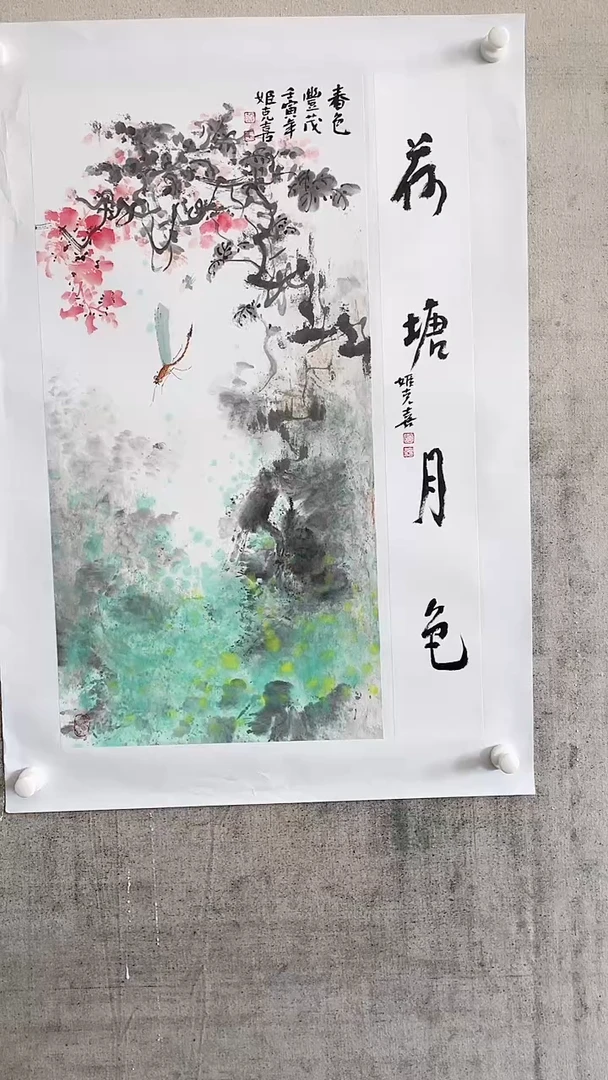 春色
豐茂
壬寅年
姬克喜
荷塘月色
姬克喜